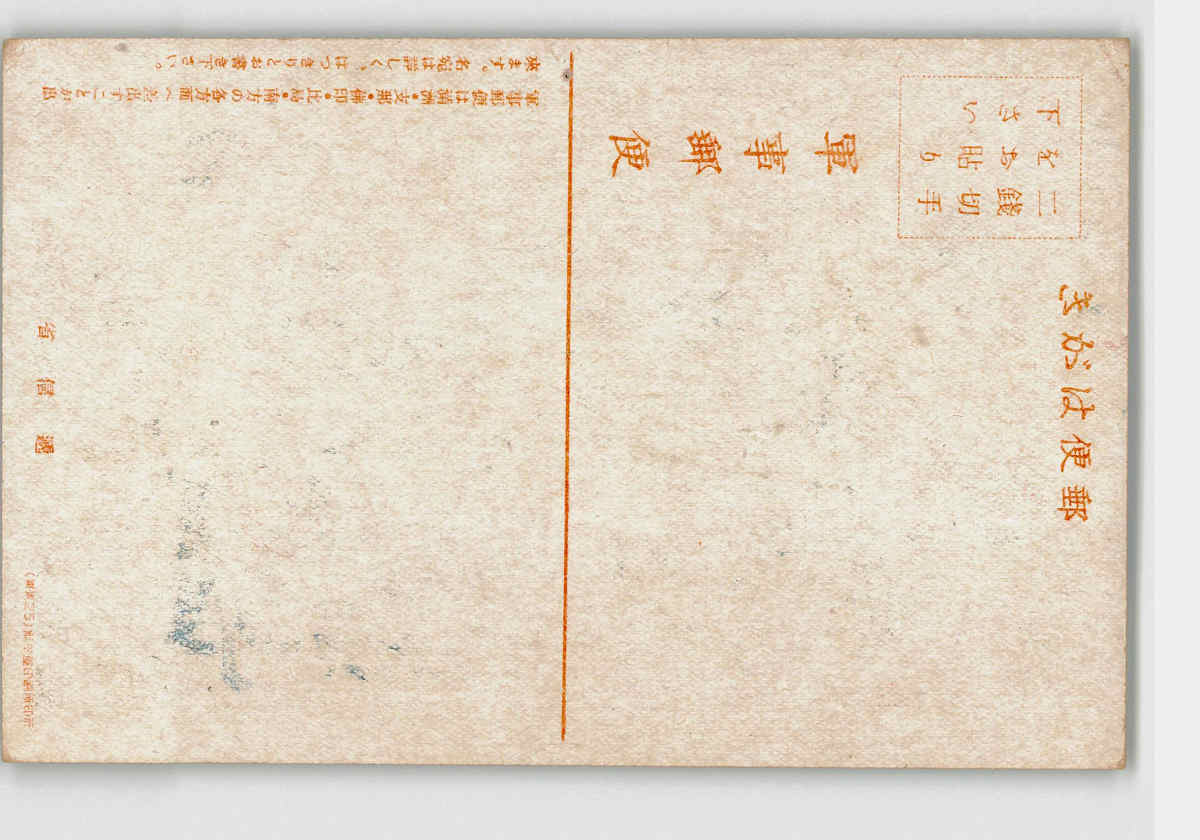 郵便はがき
二錢切手
をお貼り
下さい
軍事郵便
軍事郵便は滿洲・支那・佛印・比島・南方の各方面へ差出すことが出
來ます。名宛は詳しく、はつきりとお書き下さい。
遞信省